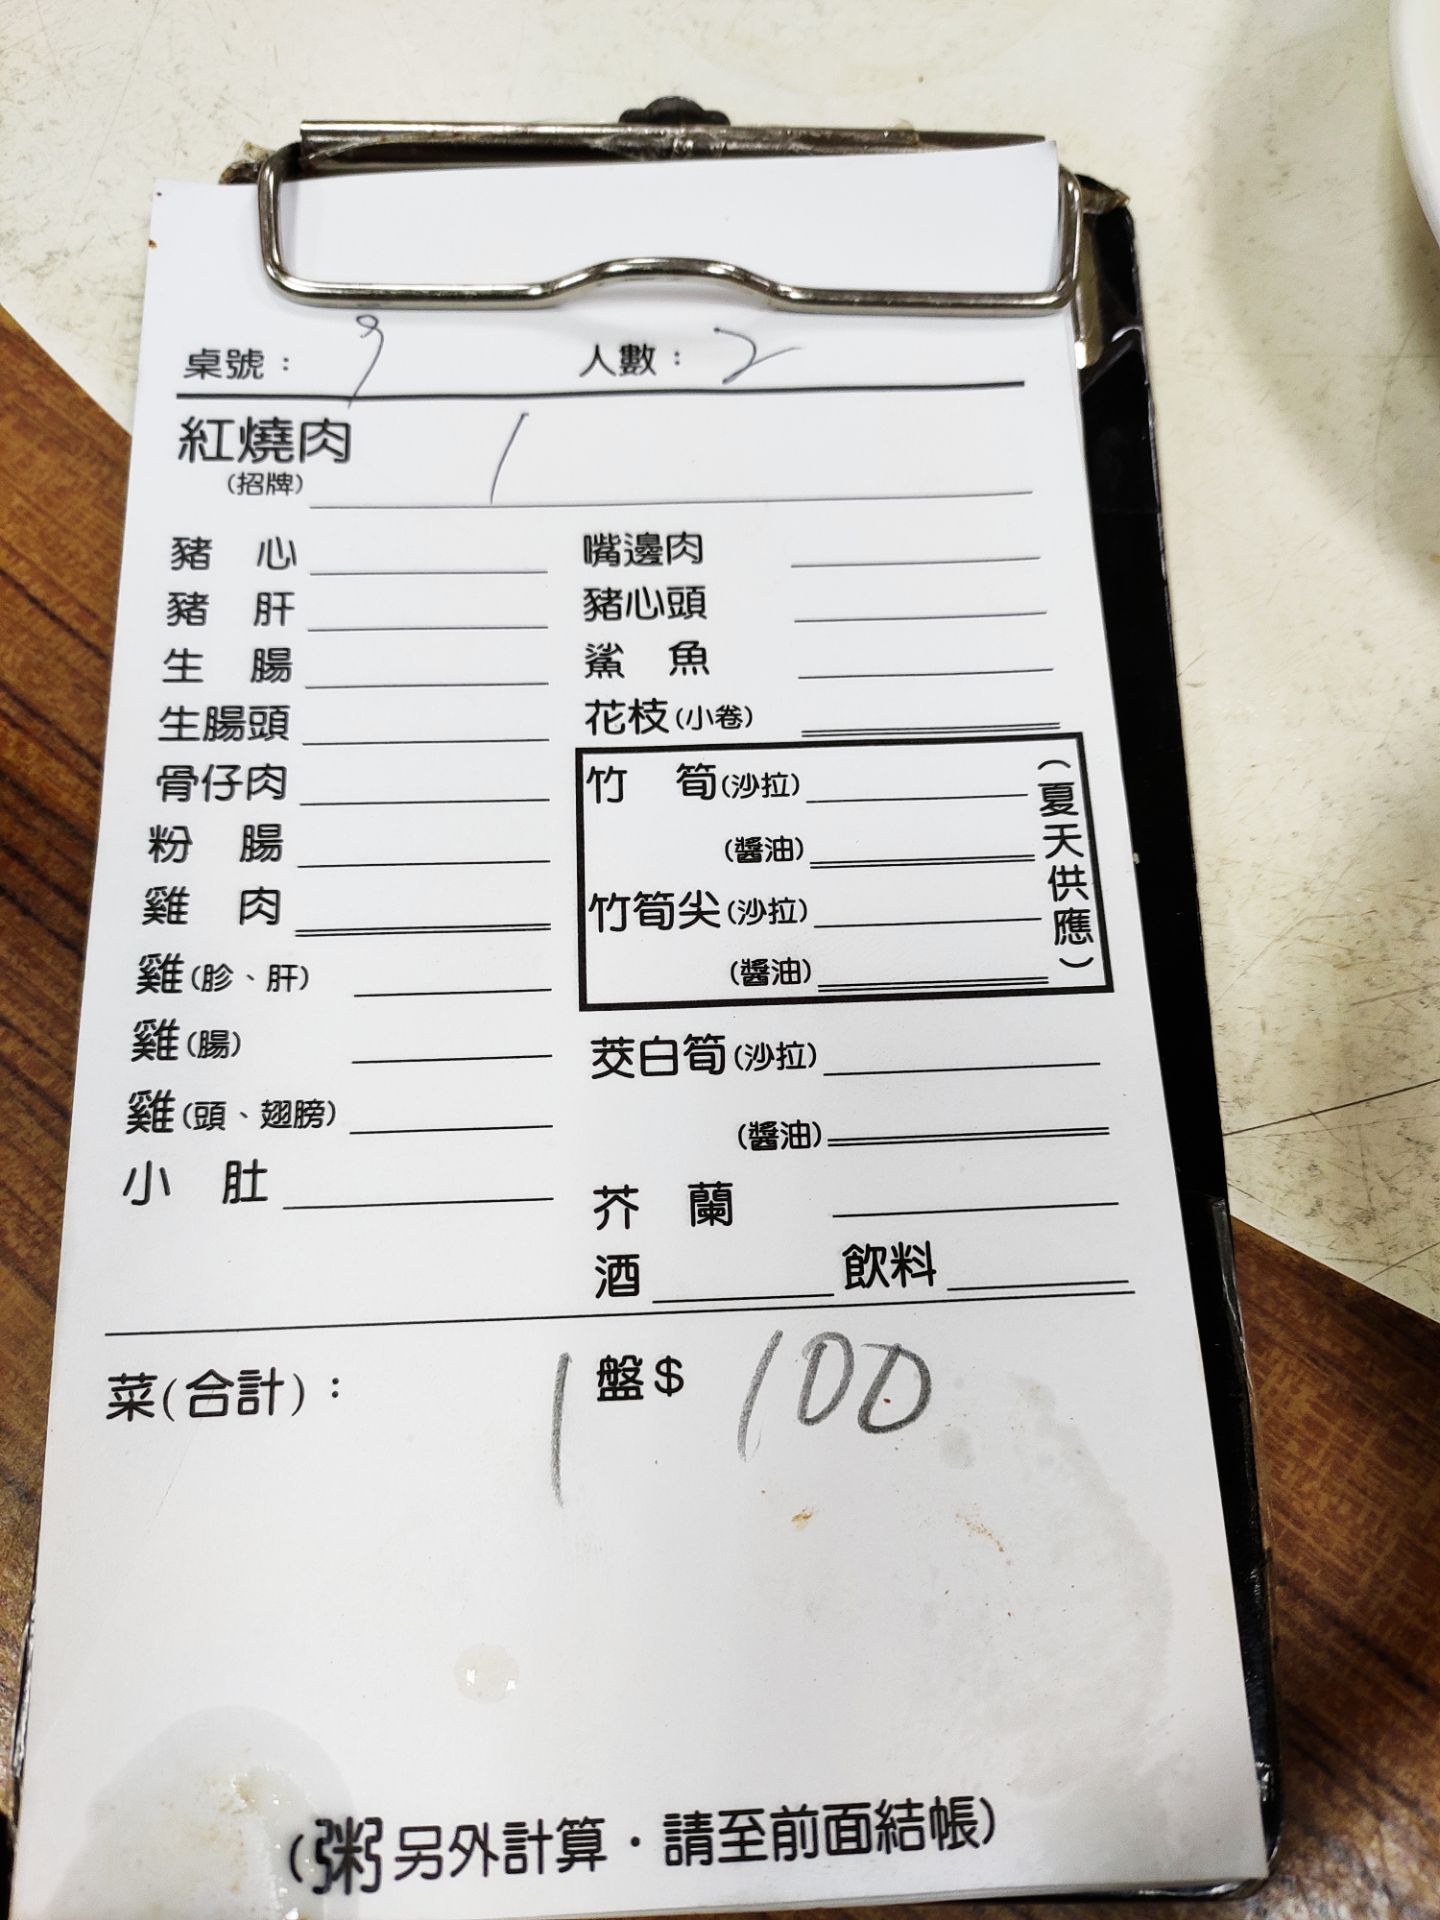 桌號： 9 人數： 2
紅燒肉 1
(招牌)
豬 心
豬 肝
生 腸
生腸頭
骨仔肉
粉 腸
雞 肉
雞(胗、肝)
雞(腸)
雞(頭、翅膀)
小 肚
嘴邊肉
豬心頭
鯊 魚
花枝(小卷)
竹 筍(沙拉)
(醬油)
竹筍尖(沙拉)
(醬油)
(夏天供應)
茭白筍(沙拉)
(醬油)
芥 蘭
酒 飲料
菜(合計)： 1 盤$ 100
(粥另外計算·請至前面結帳)